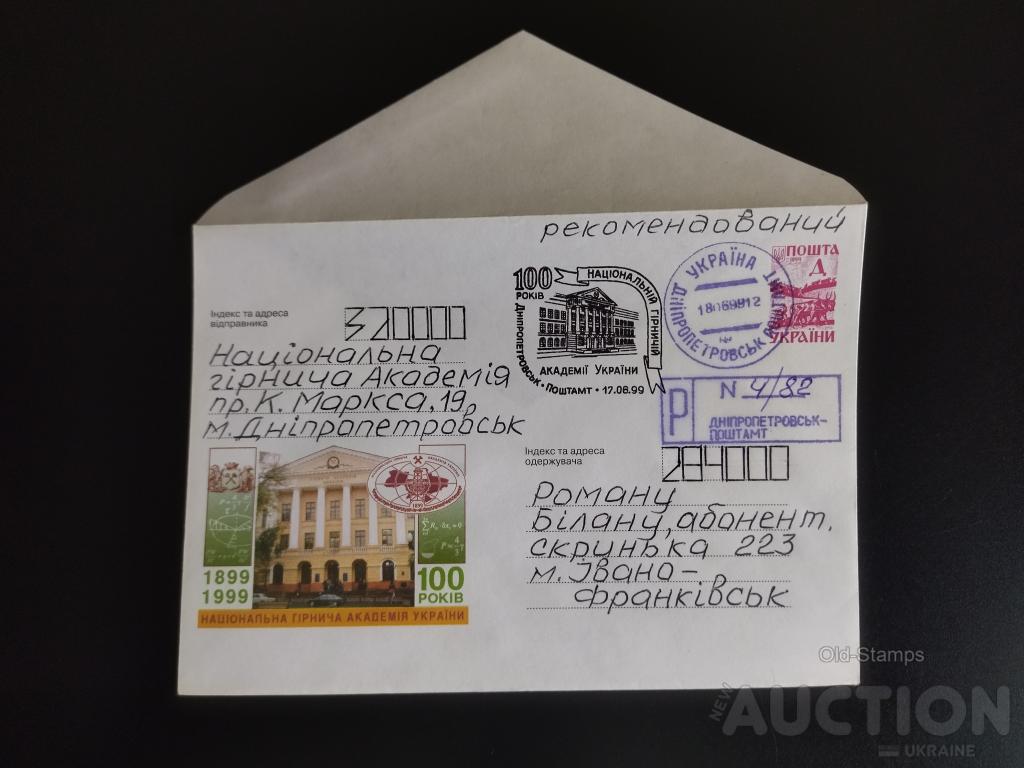 рекомендований
ПОШТА
Д
УКРАЇНИ
УКРАЇНА
180699 12
ДНІПРОПЕТРОВСЬК ПОШТАМТ
100
РОКІВ
НАЦІОНАЛЬНІЙ ГІРНИЧІЙ
АКАДЕМІЇ УКРАЇНИ
ДНІПРОПЕТРОВСЬК • ПОШТАМТ • 17.06.99
Р
N 4/82
ДНІПРОПЕТРОВСЬК-
ПОШТАМТ
Індекс та адреса
відправника
320000
Національна
гірнича Академія
пр. К. Маркса, 19,
м. Дніпропетровськ
Індекс та адреса
одержувача
284000
Роману
Білану, абонент.
скринька 223
м. Івано-
Франківськ
1899
1999
100
РОКІВ
НАЦІОНАЛЬНА ГІРНИЧА АКАДЕМІЯ УКРАЇНИ
Old-Stamps
NEW
AUCTION
UKRAINE